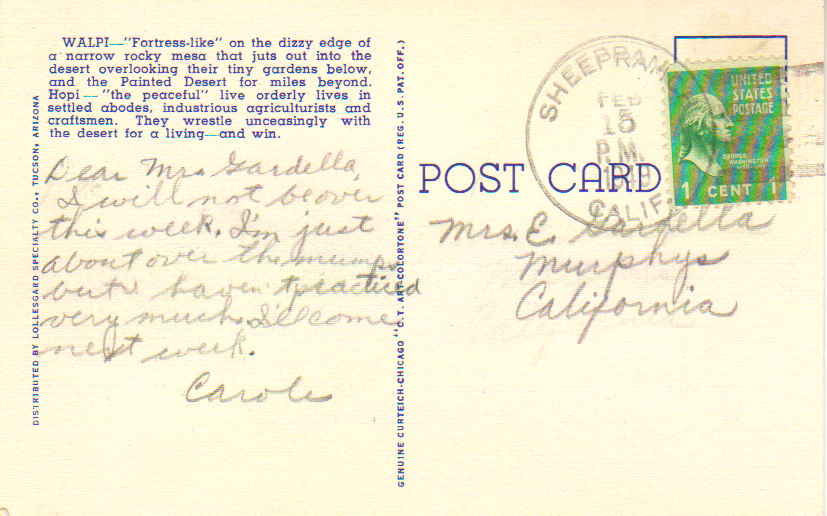 WALPI—"Fortress-like" on the dizzy edge of
a narrow rocky mesa that juts out into the
desert overlooking their tiny gardens below,
and the Painted Desert for miles beyond.
Hopi—"the peaceful" live orderly lives in
settled abodes, industrious agriculturists and
craftsmen. They wrestle unceasingly with
the desert for a living—and win.
Dear Mrs Gardella,
I will not be over
this week. I'm just
about over the mumps
but haven't practiced
very much. I'll come
next week.
Carole
DISTRIBUTED BY LOLLESGARD SPECIALTY CO., TUCSON, ARIZONA
GENUINE CURTEICH-CHICAGO "C.T. ART-COLORTONE" POST CARD (REG. U.S. PAT. OFF.)
POST CARD
SHEEPRAN
FEB
15
P.M.
CALIF.
UNITED
STATES
POSTAGE
GEORGE
WASHINGTON
1 CENT 1
Mrs. E. Gardella
Murphys
California